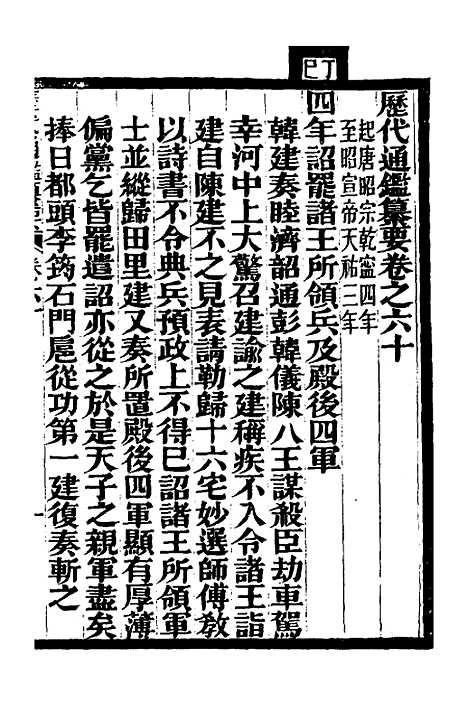 歷代通鑑纂要卷之六十
起唐昭宗乾寧四年
至昭宣帝天祐三年
丁巳
四年詔罷諸王所領兵及殿後四軍
韓建奏睦濟韶通彭韓儀陳八王謀殺臣劫車駕
幸河中上大驚召建諭之建稱疾不入令諸王詣
建自陳建不之見表請勒歸十六宅妙選師傅敎
以詩書不令典兵預政上不得已詔諸王所領軍
士並縱歸田里建又奏所置殿後四軍顯有厚薄
偏黨乞皆罷遣詔亦從之於是天子之親軍盡矣
捧日都頭李筠石門扈從功第一建復奏斬之